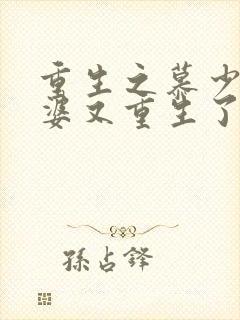 重生之慕少
婆又重生了
孫占鋒